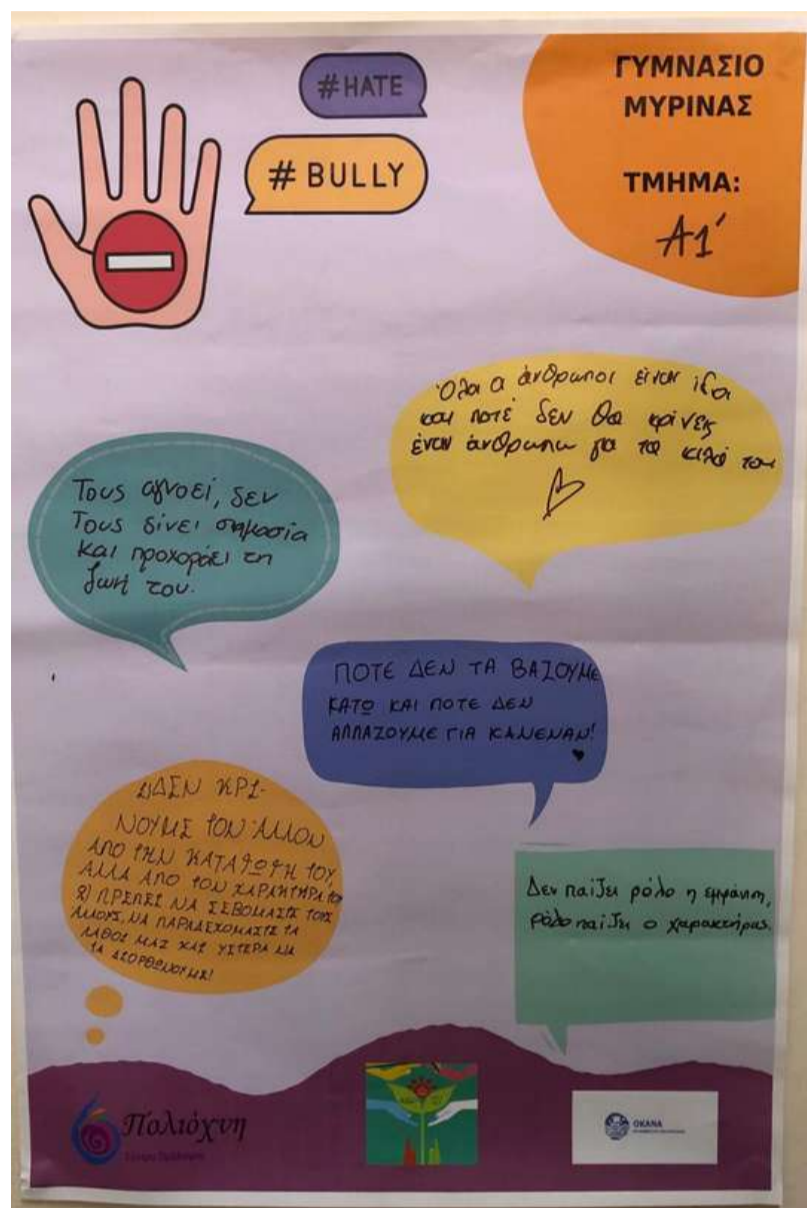 #HATE
# BULLY
ΓΥΜΝΑΣΙΟ
ΜΥΡΙΝΑΣ
ΤΜΗΜΑ:
Α1΄
Όλα α άνθρωποι είναι ίδα
και ποτέ δεν θα κρίνεις
έναν άνθρωπω για τα κιλά του
Τους αγνοεί, δεν
Τους δίνει σημασία
και προχοράει τη
ζωή του.
ΠΟΤΕ ΔΕΝ ΤΑ ΒΑΖΟΥΜΕ
ΚΑΤΩ ΚΑΙ ΠΟΤΕ ΔΕΝ
ΑΛΛΑΖΟΥΜΕ ΓΙΑ ΚΑΝΕΝΑΝ!
1)ΔΕΝ ΚΡΙ-
ΝΟΥΜΕ ΤΟΝ ΑΛΛΟΝ
ΑΠΟ ΤΗΝ ΚΑΤΑΓΩΓΗ ΤΟΥ,
ΑΛΛΑ ΑΠΟ ΤΟΝ ΧΑΡΑΚΤΗΡΑ ΤΟΥ
2) ΠΡΕΠΕΙ ΝΑ ΣΕΒΟΜΑΣΤΕ ΤΟΥΣ
ΑΛΛΟΥΣ, ΝΑ ΠΑΡΑΔΕΧΟΜΑΣΤΕ ΤΑ
ΛΑΘΟΣ ΜΑΣ ΚΑΙ ΥΣΤΕΡΑ ΝΑ
ΤΑ ΔΙΟΡΘΩΝΟΥΜΕ!
Δεν παίζει ρόλο η εμφάνιση,
ρόλο παίζει ο χαρακτήρας.
Πολιόχνη
Κέντρο Πρόληψης
ΟΚΑΝΑ